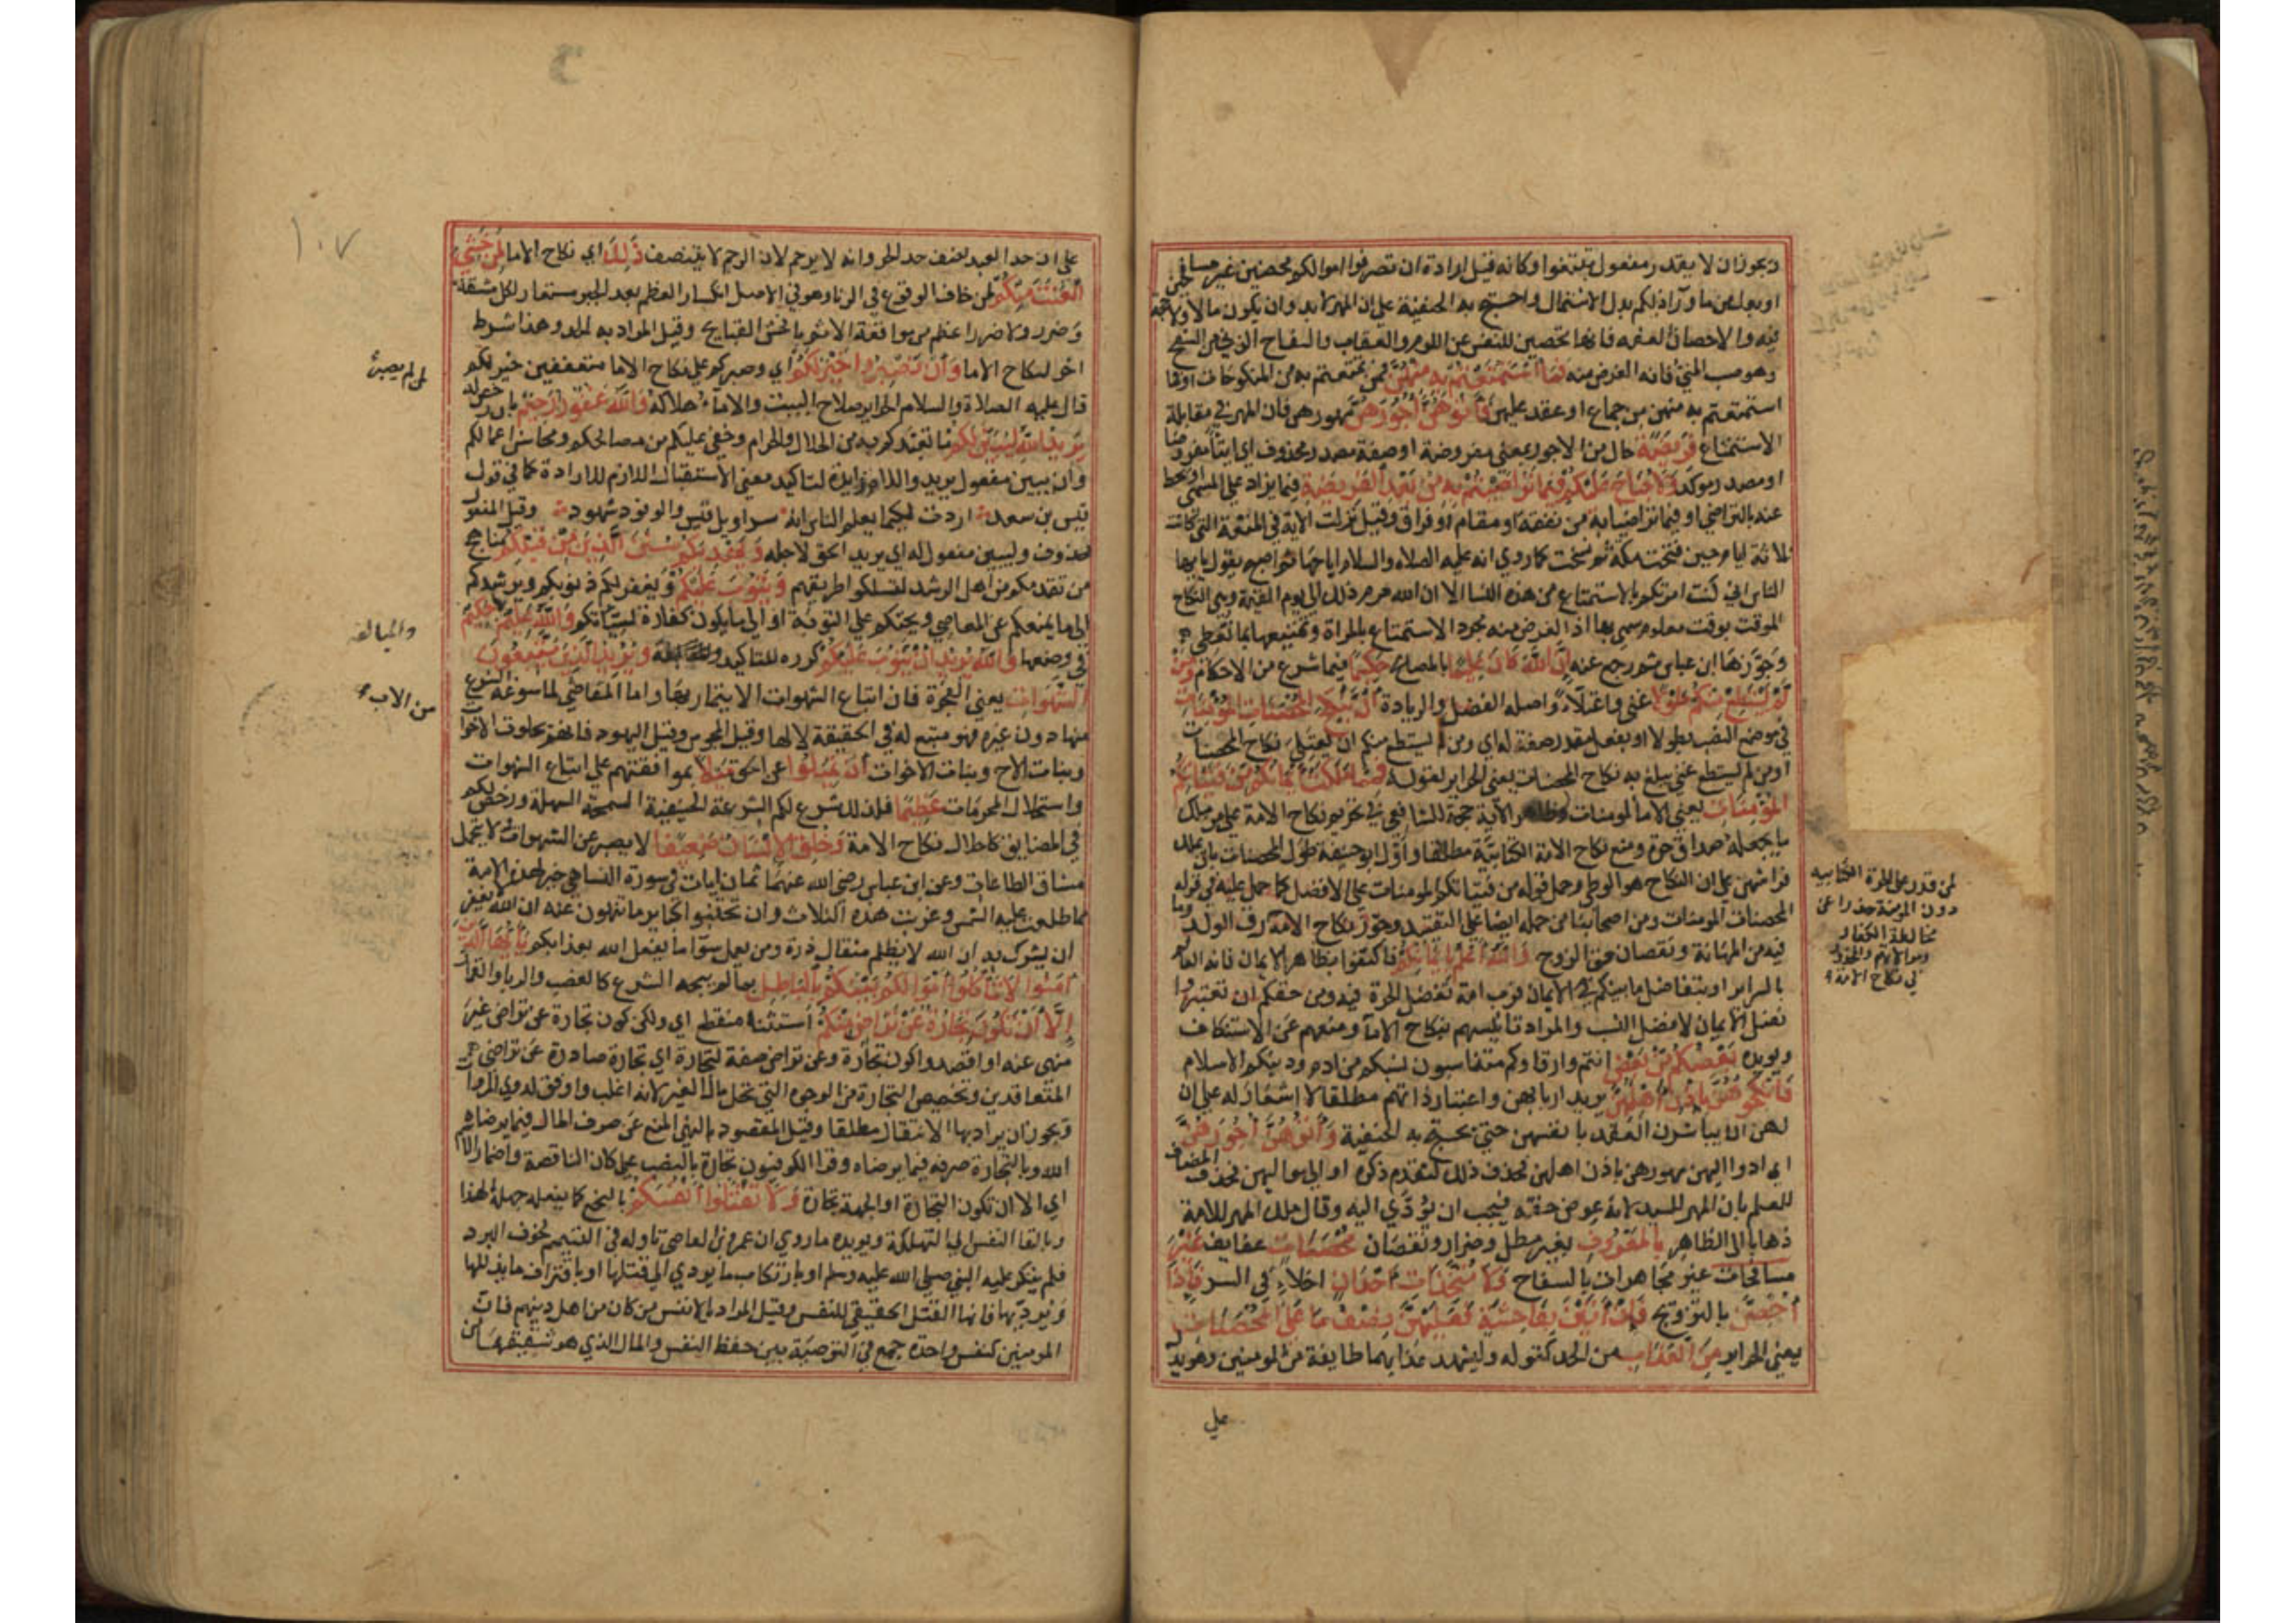 ويجوز ان لا يقدر مفعول تبتغوا وكانه قيل ارادة ان تصرفوا اموالكم محصنين غير مسافحين
او بدل من ما وراء ذلكم بدل الاشتمال واحتج به الحنفية على ان المهر لابد وان يكون مالا ولا حجة
فيه والاحصان العفه فانها تحصين للنفس عن اللوم والعقاب والسفاح الزنى من السفح
وهو صب المني فانه الغرض منه فما استمتعتم به منهن فمن تمتعتم به من المنكوحات او فما
استمتعتم به منهن من جماع او عقد عليهن فآتوهن أجورهن مهورهن فان المهر في مقابلة
الاستمتاع فريضة حال من الاجور بمعنى مفروضة او صفة مصدر محذوف اي ايتاء مفروضا
او مصدر موكد ولا جناح عليكم فيما تراضيتم به من بعد الفريضة فيما يزاد على المسمى او يحط
عنه بالتراضي او فيما تراضيا به من نفقة او مقام او فراق وقيل نزلت الاية في المتعة التي كانت
ثلاثة ايام حين فتحت مكة ثم نسخت كما روي انه عليه الصلاه والسلام اباحها ثم اصبح يقول يا يها
الناس اني كنت امرتكم بالاستمتاع من هذه النسا الا ان الله حرم ذلك الى يوم القيمة وهي النكاح
الموقت بوقت معلوم سمي بها اذ الغرض منه مجرد الاستمتاع بالمراة وتمتيعها بما تعطى
وجوزها ابن عباس ثم رجع عنه إن الله كان عليما بالمصالح حكيما فيما شرع من الاحكام ومن
لم يستطع منكم طولا غنى واعتلاء واصله الفضل والزيادة أن ينكح المحصنات المؤمنات
في موضع النصب بطولا او بفعل مقدر صفة له اي ومن لم يستطع منكم ان يعتلي نكاح المحصنات
او من لم يستطع غنى يبلغ به نكاح المحصنات يعني الحراير لقوله فمما ملكت أيمانكم من فتياتكم
المؤمنات يعني الاما المومنات وظاهر الآية حجة للشافعي في تحريم نكاح الامة على من ملك
ما يجعله صداق حرة ومنع نكاح الامة الكتابية مطلقا واول ابو حنيفة طول المحصنات بان يملك
فراشهن على ان النكاح هو الوطي وحمل قوله من فتياتكم المومنات على الافضل كما حمل عليه في قوله
المحصنات المومنات ومن اصحابنا من حمله ايضا على التقييد وجوز نكاح الامة
لمن قدر على الحرة الكتابيه
دون المومنة حذرا عن
مخالطة الكفار
وموالاتهم والمحذور
في نكاح الامة
رق الولد وما
فيه من المهانة ونقصان حق الزوج والله أعلم بإيمانكم فاكتفوا بظاهر الايمان فانه العالم
بالسراير او بتفاضل ما بينكم في الايمان فرب امة تفضل الحرة فيه ومن حقكم ان تعتبروا
فضل الايمان لا فضل النسب والمراد تانيسهم بنكاح الاماء ومنعهم عن الاستنكاف
ويويده بعضكم من بعض انتم وارقاوكم متناسبون نسبكم من ادم ودينكم الاسلام
فانكحوهن بإذن أهلهن يريد اربابهن واعتبار اذنهم مطلقا لا اشعار له على ان
لهن ان يباشرن العقد بانفسهن حتى يحتج به الحنفية وآتوهن أجورهن
اي ادوا اليهن مهورهن باذن اهلهن فحذف ذلك لتقدم ذكره او الى مواليهن فحذف المضاف
للعلم بان المهر للسيد لانه عوض حقه فيجب ان يؤدى اليه وقال ملك المهر للامة
ذهابا الى الظاهر بالمعروف بغير مطل وضرار ونقصان محصنات عفايف غير
مسافحات غير مجاهرات بالسفاح ولا متخذات أخدان اخلاء في السر فإذا
أحصن بالتزويج فإن أتين بفاحشة فعليهن نصف ما على المحصنات
يعني الحراير من العذاب من الحد كقوله وليشهد عذابهما طايفة من المومنين وهو يدل
على
١٠٧
على ان حد العبد نصف حد الحر وانه لا يرجم لان الرجم لا يتنصف ذلك اي نكاح الاما لمن خشي
العنت منكم لمن خاف الوقوع في الزنا وهو في الاصل انكسار العظم بعد الجبر مستعار لكل مشقة
وضرر ولا ضرر اعظم من مواقعة الاثم بافحش القبايح وقيل المراد به الحد وهذا شرط
اخر لنكاح الاما وأن تصبروا خير لكم اي وصبركم على نكاح الاما متعففين خير لكم
قال عليه الصلاة والسلام الحراير صلاح البيت والاماء هلاكه والله غفور
لمن لم يصبر
رحيم بان رخص له
يريد الله ليبين لكم ما تعبدكم به من الحلال والحرام وخفي عليكم من مصالحكم ومحاسن اعمالكم
وان يبين مفعول يريد واللام زايدة لتاكيد معنى الاستقبال اللازم للارادة كما في قول
قيس بن سعد اردت لكيما يعلم الناس انه سراويل قيس والوفود شهود وقيل المفعول
محذوف وليبين مفعول له اي يريد الحق لاجله ويهديكم سنن الذين من قبلكم مناهج
من تقدمكم من اهل الرشد لتسلكوا طريقهم ويتوب عليكم ويغفر لكم ذنوبكم ويرشدكم
الى ما يمنعكم عن المعاصي ويحثكم على التوبة او الى ما يكون كفارة لسيئاتكم والله عليم بها حكيم
في وضعها والله يريد أن يتوب عليكم كرره للتاكيد
والمبالغه
ويريد الذين يتبعون
الشهوات يعني الفجرة فان اتباع الشهوات الايتمار بها واما المتعاطي لما سوغه الشرع
منها دون غيره فهو متبع له في الحقيقة لا لها وقيل المجوس وقيل اليهود فانهم يحلون الاخوات
من الاب
وبنات الاخ وبنات الاخوات أن تميلوا عن الحق ميلا بموافقتهم على اتباع الشهوات
واستحلال المحرمات عظيما فلذلك شرع لكم الشرعة الحنيفية السمحة السهلة ورخص لكم
في المضايق كاحلال نكاح الامة وخلق الإنسان ضعيفا لا يصبر عن الشهوات ولا يتحمل
مشاق الطاعات وعن ابن عباس رضي الله عنهما ثمان ايات في سورة النسا هي خير لهذه الامة
مما طلعت عليه الشمس وغربت هذه الثلاث وان تجتنبوا كباير ما تنهون عنه ان الله لا يغفر
ان يشرك به ان الله لا يظلم مثقال ذرة ومن يعمل سوءا ما يفعل الله بعذابكم يا أيها الذين
آمنوا لا تأكلوا أموالكم بينكم بالباطل بما لم يبحه الشرع كالغصب والربا والقمار
إلا أن تكون تجارة عن تراض منكم استثناء منقطع اي ولكن كون تجارة عن تراض غير
منهي عنه او اقصدوا كون تجارة وعن تراض صفة لتجارة اي تجارة صادرة عن تراضي
المتعاقدين وتخصيص التجارة من الوجوه التي تحل مال الغير لانه اغلب واوفق لذوي المروات
ويجوز ان يراد بها الانتقال مطلقا وقيل المقصود بالنهي المنع عن صرف المال فيما لا يرضاه
الله وبالتجارة صرفه فيما يرضاه وقرا الكوفيون تجارة بالنصب على كان الناقصة واضمار الاسم
اي الا ان تكون التجارة او الجهة تجارة ولا تقتلوا أنفسكم بالبخع كما يفعله جهلة الهند
وبالقا النفس الى التهلكة ويويده ما روي ان عمرو بن العاصي تاوله في التيمم لخوف البرد
فلم ينكر عليه النبي صلى الله عليه وسلم او بارتكاب ما يودي الى قتلها او باقتراف ما يذللها
ويرديها فانها القتل الحقيقي للنفس وقيل المراد بالانفس من كان من اهل دينهم فان
المومنين كنفس واحدة جمع في التوصية بين حفظ النفس والمال الذي هو شقيقها من